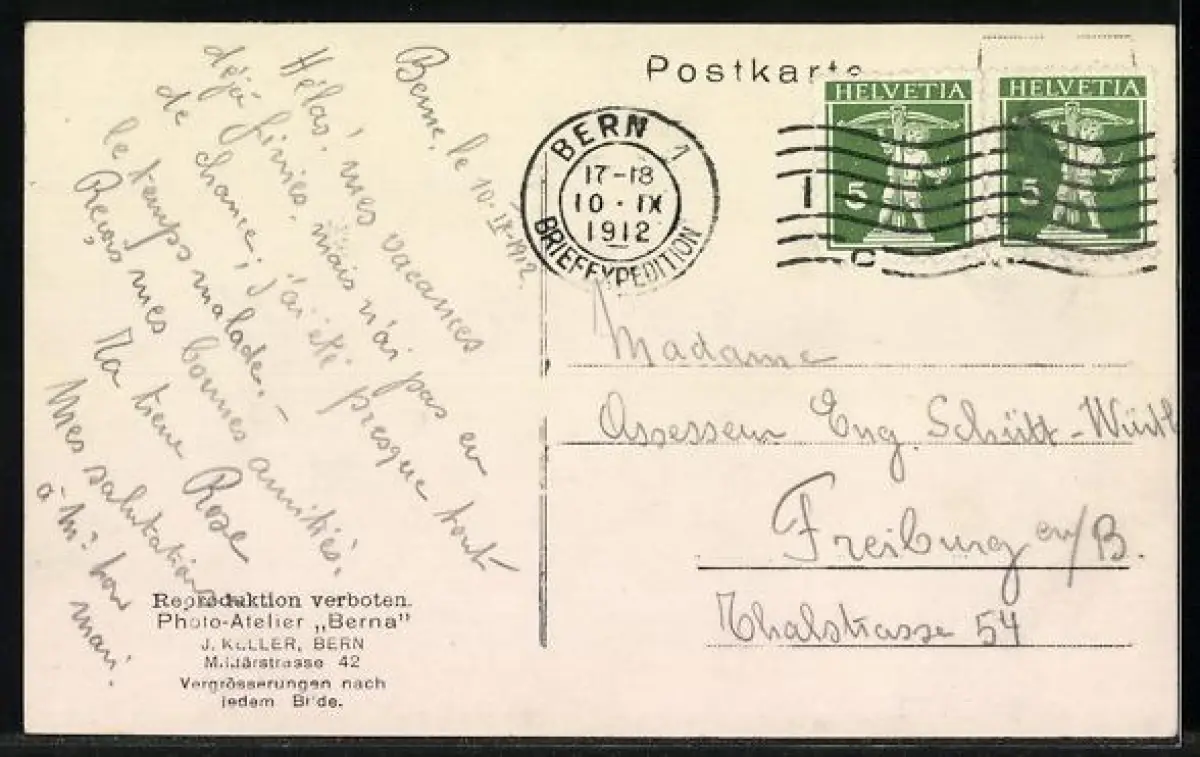 Postkarte
HELVETIA
HELVETIA
5
5
BERN 1
17-18
10·IX
1912
BRIEFEXPEDITION
Berne, le 10.IX.1912
Hélas, mes vacances
déjà finies, mais n'ai pas eu
de chance; j'ai été presque tout
le temps malade.-
Reçois mes bonnes amitiés.
Ta Rose
Mes salutations
à Mr. ton
mari.
Madame
Assessein Eug. Schütt-
Freiburg en/B.
Thalstrasse 54
Reproduktion verboten.
Photo-Atelier „Berna"
J. KELLER, BERN
Militärstrasse 42
Vergrösserungen nach
jedem Bilde.